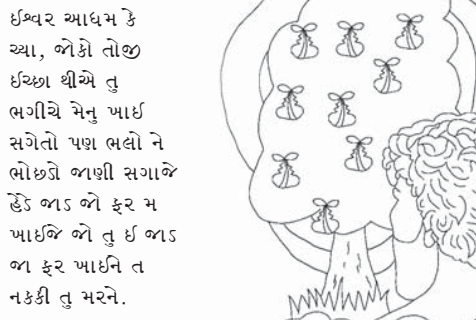 ઈશ્વર આધમ કે
ચ્યા, જોકો તોજી
ઈચ્છા થીએ તુ
ભગીચે મેનુ ખાઈ
સગેતો પણ ભલો ને
ભોછડો જાણી સગાજે
હેડે જાડ જો ફર મ
ખાઈજિ જો તુ ઈ જાડ
જા ફર ખાઈને ત
નકકી તુ મરને.